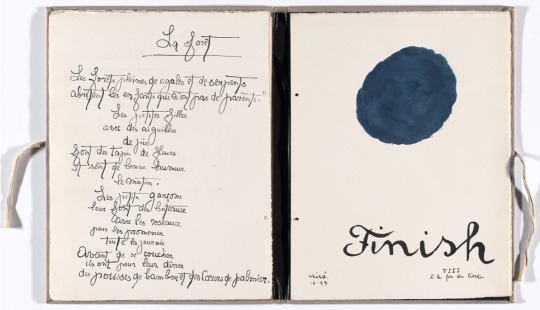 La forêt
Les forêts pleines de cigales et de serpents
abritent les enfants qui n'ont pas de parents.
Les petites filles
avec des aiguilles
de pin
font des tapis de fleurs
et sont de bonne humeur
le matin.
Les petits garçons
leur font des bateaux
avec les roseaux
pour les promener
toute la journée
Avant de se coucher
ils ont pour leur dîner
des pousses de bambou et des cœurs de palmier.
Finish
miró.
VIII
à la fin du livre